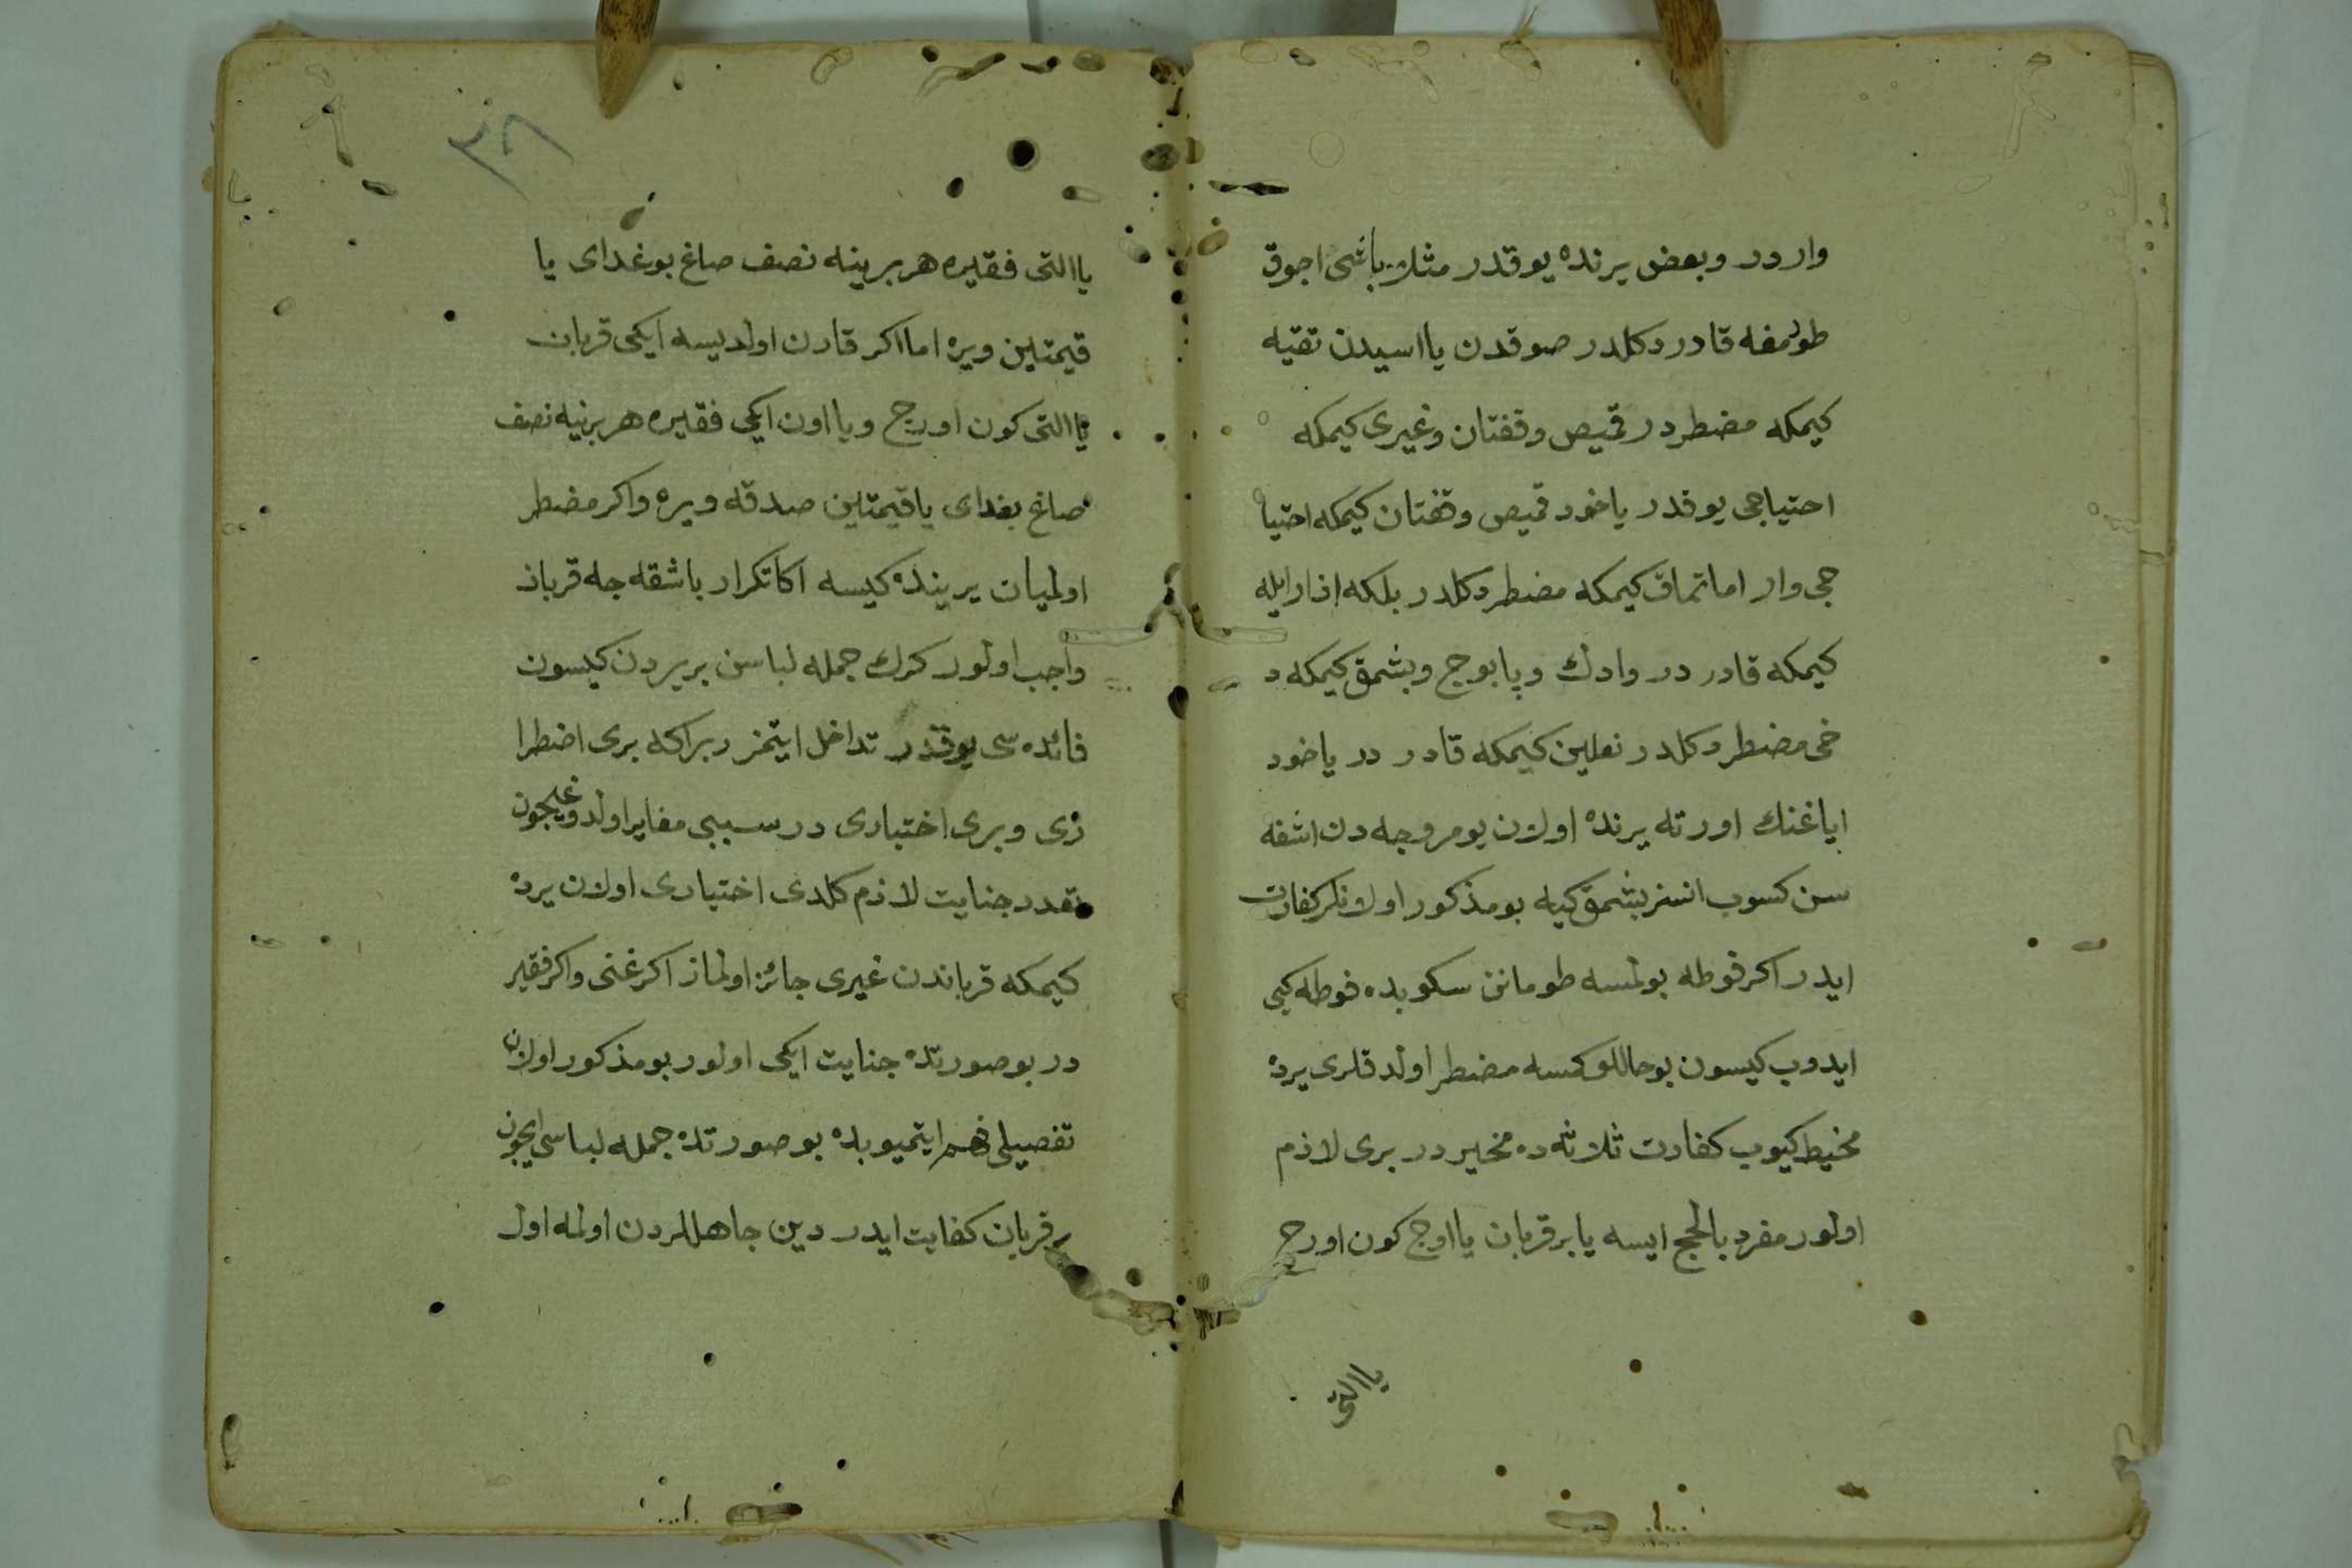 واردر وبعض يرنده يوقدر مثلا باشى اجوق
طورمغه قادر دكلدر صوقدن يا اسيدن تقيه
كيمكه مضطردر قميص وقفتان وغيرى كيمكه
احتياجى يوقدر ياخود قميص وقفتان كيمكه احتيا
جى وار اما تماق كيمكه مضطر دكلدر بلكه ازار ايله
كيمكه قادر در وادك وپابوج وبشمق كيمكه د
خى مضطر دكلدر نعلين كيمكه قادر در ياخود
اياغنك اورته يرنده اولان يومروجه دن اشغه
سن كسوب انسز بشمق كيه بو مذكور اولانلر كفارت
ايدر اكر فوطه بولمسه طومانن سكوبده فوطه كبى
ايدوب كيسون بو حاللو كمسه مضطر اولدقلرى يرده
مخيط كيوب كفارت ثلاثه ده مخير در برى لازم
اولور مفرد بالحج ايسه يا بر قربان يا اوج كون اورج
يا التى
٣٨
يا التى فقيره هر برينه نصف صاغ بوغداى يا
قيمتين ويره اما اكر قارن اولديسه ايكى قربان
يا التى كون اورج ويا اون ايكى فقيره هر برينه نصف
صاغ بغداى يا قيمتين صدقه ويره واكر مضطر
اولميان يرينده كيسه اكا تكرار باشقه جه قربان
واجب اولور كرك جمله لباسن بر يردن كيسون
فائده سى يوقدر تداخل ايتمز زيرا كه برى اضطرا
رى وبرى اختيارى در سببى مغاير اولدوغيچون
تعدد جنايت لازم كلدى اختيارى اولان يرده
كيمكه قرباندن غيرى جائز اولماز اكر غنى واكر فقير
در بو صورتده جنايت ايكى اولور بو مذكور اولان
تفصيلى فهم ايتميوبده بو صورتده جمله لباسى ايچون
بر قربان كفايت ايدر دين جاهللردن اولمه اول